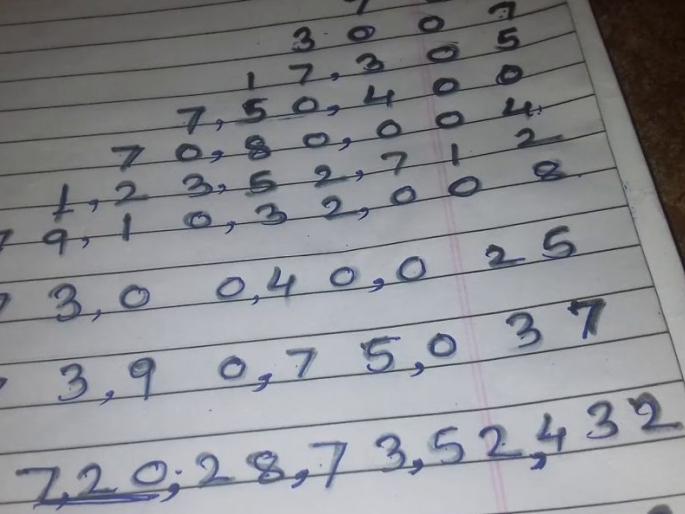 3007
17,305
7,50,400
70,80,004
1,23,52,712
9,10,32,008
3,00,40,025
3,90,75,037
7,20,28,73,52,432